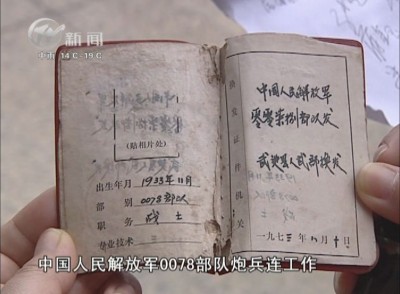 新闻
14℃-19℃
(贴相片处)
出生年月 1933年11月
部 别 0078部队
职 务 战士
专业技术
发证件机关
中国人民解放军
零零柒捌部队发
武进县人武部换发
一九七三年八月十日
中国人民解放军0078部队炮兵连工作